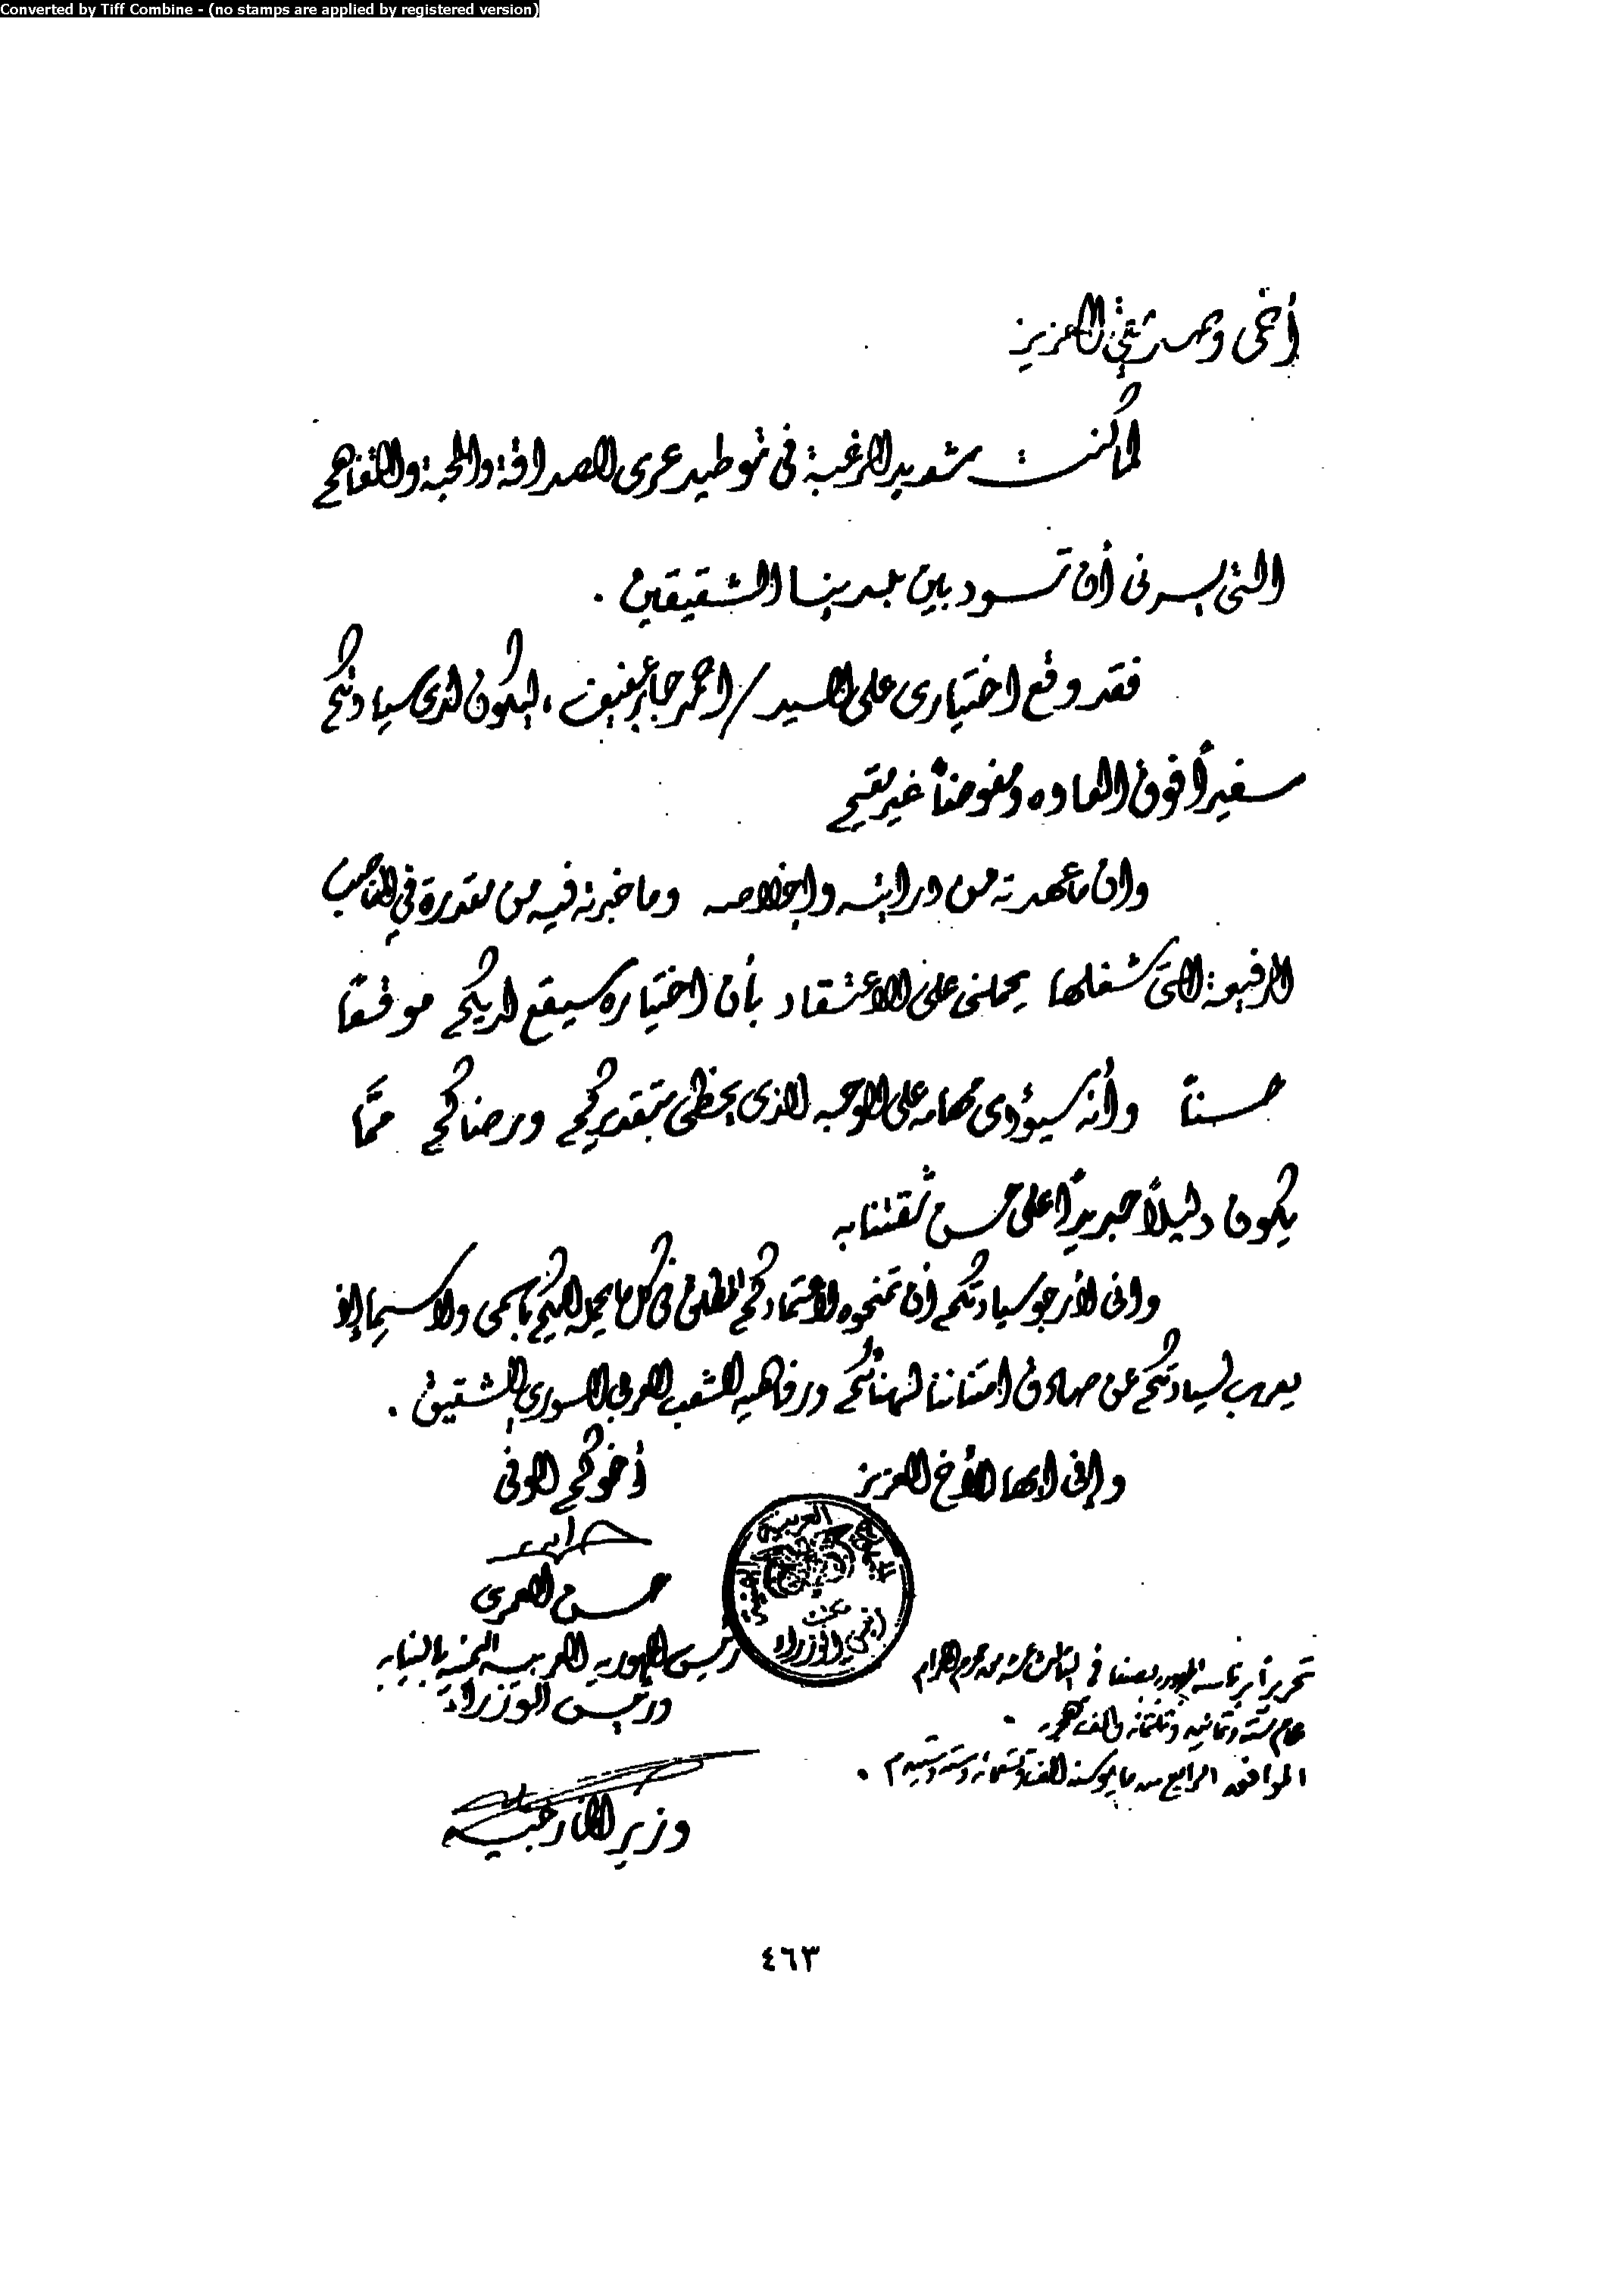 Converted by Tiff Combine - (no stamps are applied by registered version)
أخى وصديقي العزيز
لما كنت شديد الرغبة فى توطيد عرى الصداقة والمحبة والتفاهم
التى يسرنى أن تسود بين بلدينا الشقيقين .
فقد وقع اختيارى على السيد / احمد جابر عفيف ، ليكون لدى سيادتكم
سفيراً فوق العاده ومفوضاً غير مقيم
وان ما عهدته من درايته وإخلاصه وما خبرته فيه من مقدرة في المناصب
الرفيعة التى شغلها يحملنى على الاعتقاد بأن اختياره سيقع لديكم موقعاً
حسناً وأنه سيؤدى مهامه على الوجه الذى يحظى بتقديركم ورضاكم ممَّا
يكون دليلاً جديداً على حسن ثقتنا به
وانى لأرجو سيادتكم أن تمنحوه اعتمادكم المطلق فى كل ما يحمله اليكم باسمى ولا سيما إذ
يعرب لسيادتكم عن صادق امتناننا لهنائكم ورفاهيه الشعب العربى السوري الشقيق .
وإنى ايها الأخ العزيز
أخوكم الوفى
حسن العمرى
رئيس الجمهوريه العربيه اليمنيه بالنيابه
ورئيس الوزراء
العربية
مجلس الوزراء
تحريراً برئاسه الجمهوريه بصنعا فى الثامن عشر من محرم الحرام
عام سته وثمانيه وثلثمائه والف هجريه .
الموافق الرابع من مايو سنه الف وتسعمائه وسته وستين م .
وزير الخارجيه
٤٦٣